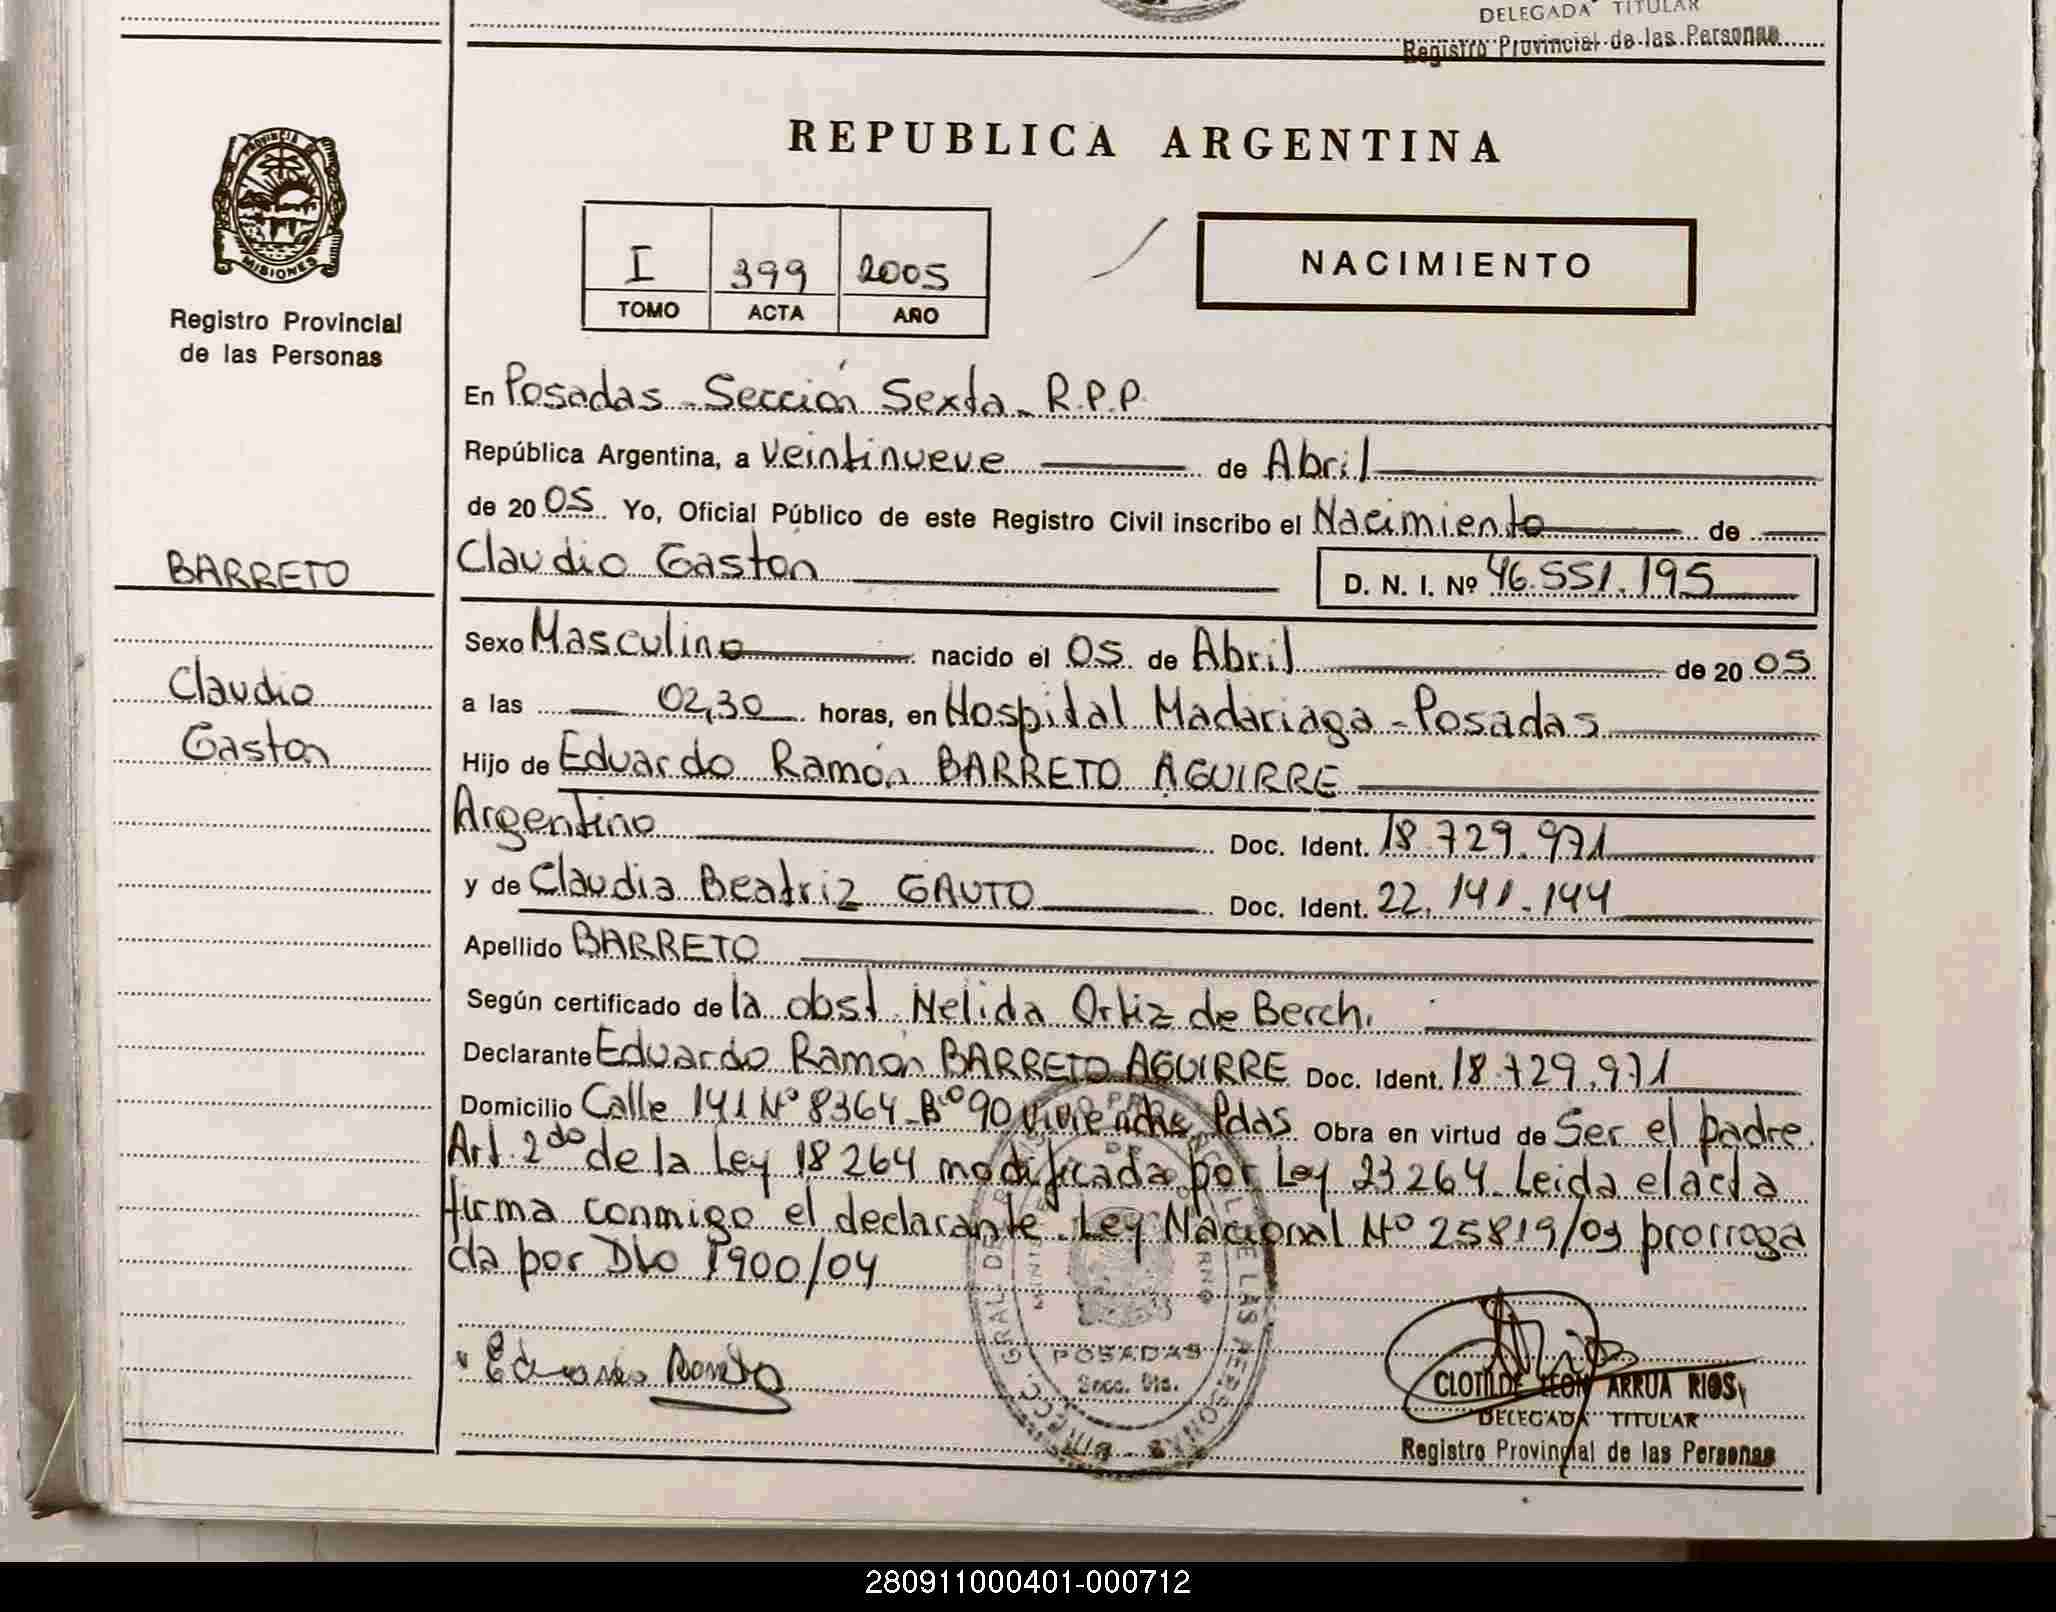 DELEGADA TITULAR
Registro Provincial de las Personas
PROVINCIA DE
MISIONES
Registro Provincial
de las Personas
REPUBLICA ARGENTINA
I 399 2005
TOMO ACTA AÑO
NACIMIENTO
En Posadas - Sección Sexta - R.P.P.
República Argentina, a Veintinueve de Abril
de 2005 Yo, Oficial Público de este Registro Civil inscribo el Nacimiento de
BARRETO
Claudio Gastón
D. N. I. Nº 46.551.195
Sexo Masculino nacido el 05 de Abril de 2005
Claudio
Gaston
a las 02,30 horas, en Hospital Madariaga - Posadas
Hijo de Eduardo Ramón BARRETO AGUIRRE
Argentino Doc. Ident. 18.729.971
y de Claudia Beatriz GAUTO Doc. Ident. 22.141.144
Apellido BARRETO
Según certificado de la obst. Nelida Ortiz de Berch.
Declarante Eduardo Ramón BARRETO AGUIRRE Doc. Ident. 18.729.971
Domicilio Calle 141 Nº 8364 - Bº 90 viviendas Pdas Obra en virtud de Ser el padre.
Art. 2do de la Ley 18264 modificada por Ley 23264. Leida el acta
firma conmigo el declarante. Ley Nacional Nº 25819/03 prorroga
da por Dto 1900/04
POSADAS
CLOTILDE LEON ARRUA RIOS
DELEGADA TITULAR
Registro Provincial de las Personas
280911000401-000712